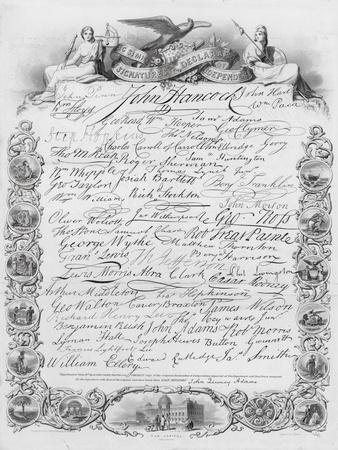 SIGNATURES
DECLARATION
INDEPENDENCE
John Penn
John Hancock
John Hart
Wm Hooper
Saml Adams
Wm Paca
Geo Read
Geo Clymer
Step Hopkins
Charles Carroll of Carrollton
Elbridge Gerry
Tho M. Kean
Roger Sherman
Sam Huntington
Wm Whipple
Thomas Lynch Junr
Geo Taylor
Josiah Bartlett
Benj Franklin
Wm Williams
Rich Stockton
John Morton
Oliver Wolcott
Jno Witherspoon
Geo. Ross
Tho Stone
Samuel Chase
Rob Treat Paine
George Wythe
Matthew Thornton
Fran. Lewis
Th Jefferson
Benj Harrison
Lewis Morris
Abra Clark
Phil. Livingston
Cæsar Rodney
Arthur Middleton
Fras Hopkinson
Geo Walton
Carter Braxton
James Wilson
Richard Henry Lee
Tho Heyward Junr
Benjamin Rush
John Adams
Rob Morris
Lyman Hall
Joseph Hewes
Button Gwinnett
Francis Lightfoot Lee
Edward Rutledge
Jas Smith
William Ellery
John Quincy Adams
THE CAPITOL